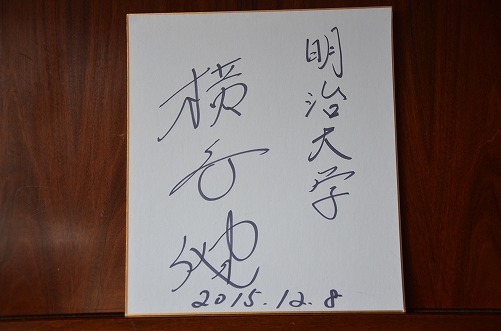 明治大学
横
2015.12.8